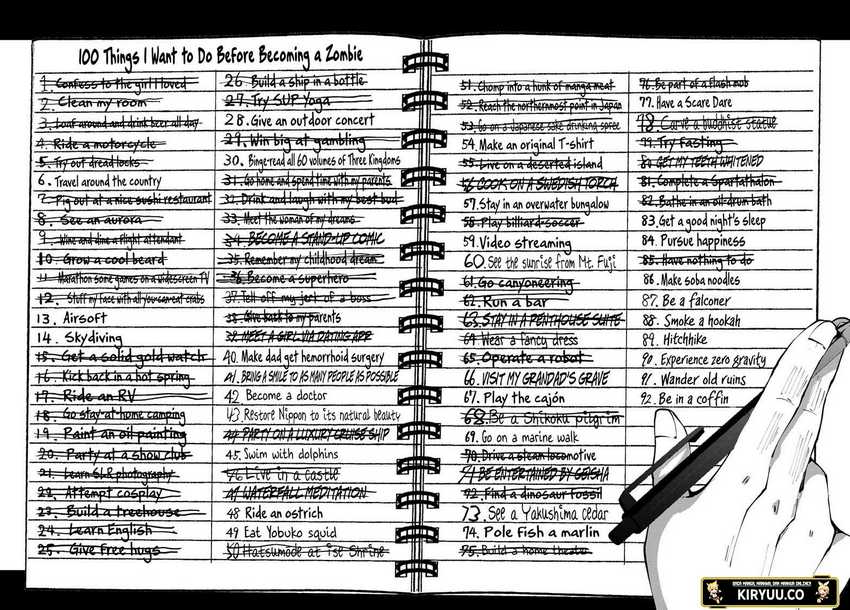 100 Things I Want to Do Before Becoming a Zombie
1. Confess to the girl I loved
2. Clean my room
3. Loaf around and drink beer all day
4. Ride a motorcycle
5. Try out dreadlocks
6. Travel around the country
7. Pig out at a nice sushi restaurant
8. See an aurora
9. Wine and dine a flight attendant
10. Grow a cool beard
11. Marathon some games on a widescreen TV
12. Stuff my face with all you can eat crabs
13. Airsoft
14. Skydiving
15. Get a solid gold watch
16. Kick back in a hot spring
17. Ride an RV
18. Go stay-at-home camping
19. Paint an oil painting
20. Party at a show club
21. Learn SL& photography
22. Attempt cosplay
23. Build a treehouse
24. Learn English
25. Give free hugs
26. Build a ship in a bottle
27. Try SUP Yoga
28. Give an outdoor concert
29. Win big at gambling
30. Binge-read all 60 volumes of Three Kingdoms
31. Go home and spend time with my parents
32. Drink and laugh with my best bud
33. Meet the woman of my dreams
34. BECOME A STAND-UP COMIC
35. Remember my childhood dream
36. Become a superhero
37. Tell off my jerk of a boss
38. Give back to my parents
39. MEET A GIRL VIA DATING APP
40. Make dad get hemorrhoid surgery
41. BRING A SMILE TO AS MANY PEOPLE AS POSSIBLE
42 Become a doctor
43 Restore Nippon to its natural beauty
44 PARTY ON A LUXURY CRUISE SHIP
45. Swim with dolphins
46 Live in a castle
47 WATERFALL MEDITATION
48 Ride an ostrich
49 Eat Yobuko squid
50 Hatsumode at ise Shrine
51. Chomp into a hunk of manga meat
52. Reach the northernmost point in Japan
53. Go on a Japanese sake drinking spree
54. Make an original T-shirt
55. Live on a deserted island
56 COOK ON A SWEDISH TORCH
57. Stay in an overwater bungalow
58. Play billiard soccer
59. Video streaming
60. See the sunrise from Mt. Fuji
61. Go canyoneering
62. Run a bar
63. STAY IN A PENTHOUSE SUITE
64. Wear a fancy dress
65. Operate a robot
66. VISIT MY GRANDAD'S GRAVE
67. Play the cajón
68. Be a Shikoku pilgrim
69. Go on a marine walk
70. Drive a steam locomotive
71 BE ENTERTAINED BY GEISHA
72. Find a dinosaur fossil
73. See a Yakushima cedar
74. Pole Fish a marlin
75. Build a home theater
76. Be part of a flash mob
77. Have a Scare Dare
78. Carve a buddhist statue
79. Try Fasting
80 GET MY TEETH WHITENED
81. Complete a Spartathalon
82. Bathe in an oil drum bath
83. Get a good night's sleep
84. Pursue happiness
85. Have nothing to do
86. Make soba noodles
87. Be a falconer
88. Smoke a hookah
89. Hitchhike
90. Experience zero gravity
91. Wander old ruins
92. Be in a coffin
BACA MANGA, MANHWA, DAN MANHUA ONLINE!
KIRYUU.CO